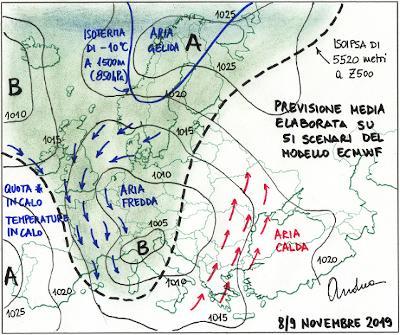 ISOTERMA
DI -10°C
A 1500m
(850hPa)
ARIA
GELIDA
A
1025
1025
1020
1015
ISOIPSA DI
5520 METRI
A Z500
PREVISIONE MEDIA
ELABORATA SU
51 SCENARI DEL
MODELLO ECMWF
B
1010
1015
1010
1015
QUOTA
IN CALO
TEMPERATURE
IN CALO
ARIA
FREDDA
1005
B
ARIA
CALDA
A
1025
1020
1015
1010
1015
1020
Andrea
8/9 NOVEMBRE 2019